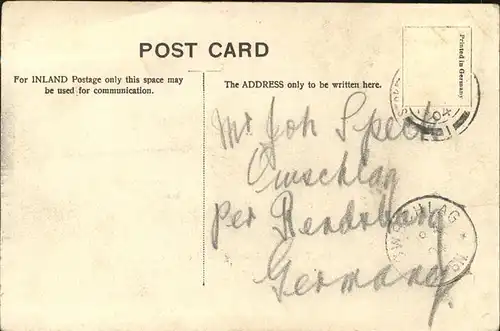 POST CARD
For INLAND Postage only this space may
be used for communication.
The ADDRESS only to be written here.
Printed in Germany
04
Mr Joh Speck
Owschlag
per Rendsburg
Germany
OWSCHLAG